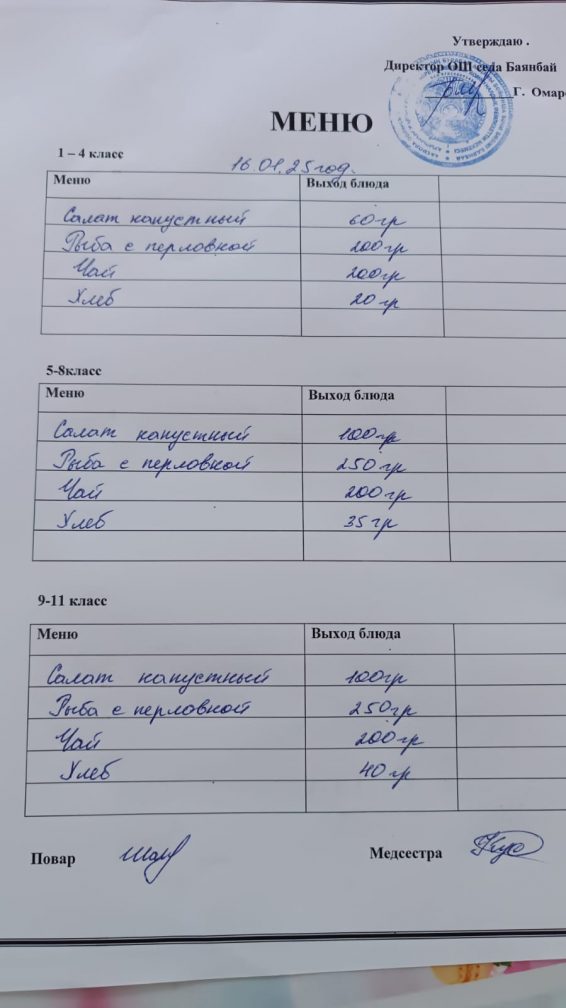 Утверждаю .
Директор ОШ села Баянбай
Г. Омаро
МЕНЮ
1 – 4 класс
16.01.25год.
Меню Выход блюда
Салат капустный 60гр
Рыба с перловкой 200гр
Чай 200гр
Хлеб 20гр
5-8класс
Меню Выход блюда
Салат капустный 100гр
Рыба с перловкой 250гр
Чай 200гр
Хлеб 35гр
9-11 класс
Меню Выход блюда
Салат капустный 100гр
Рыба с перловкой 250гр
Чай 200гр
Хлеб 40гр
Повар Медсестра